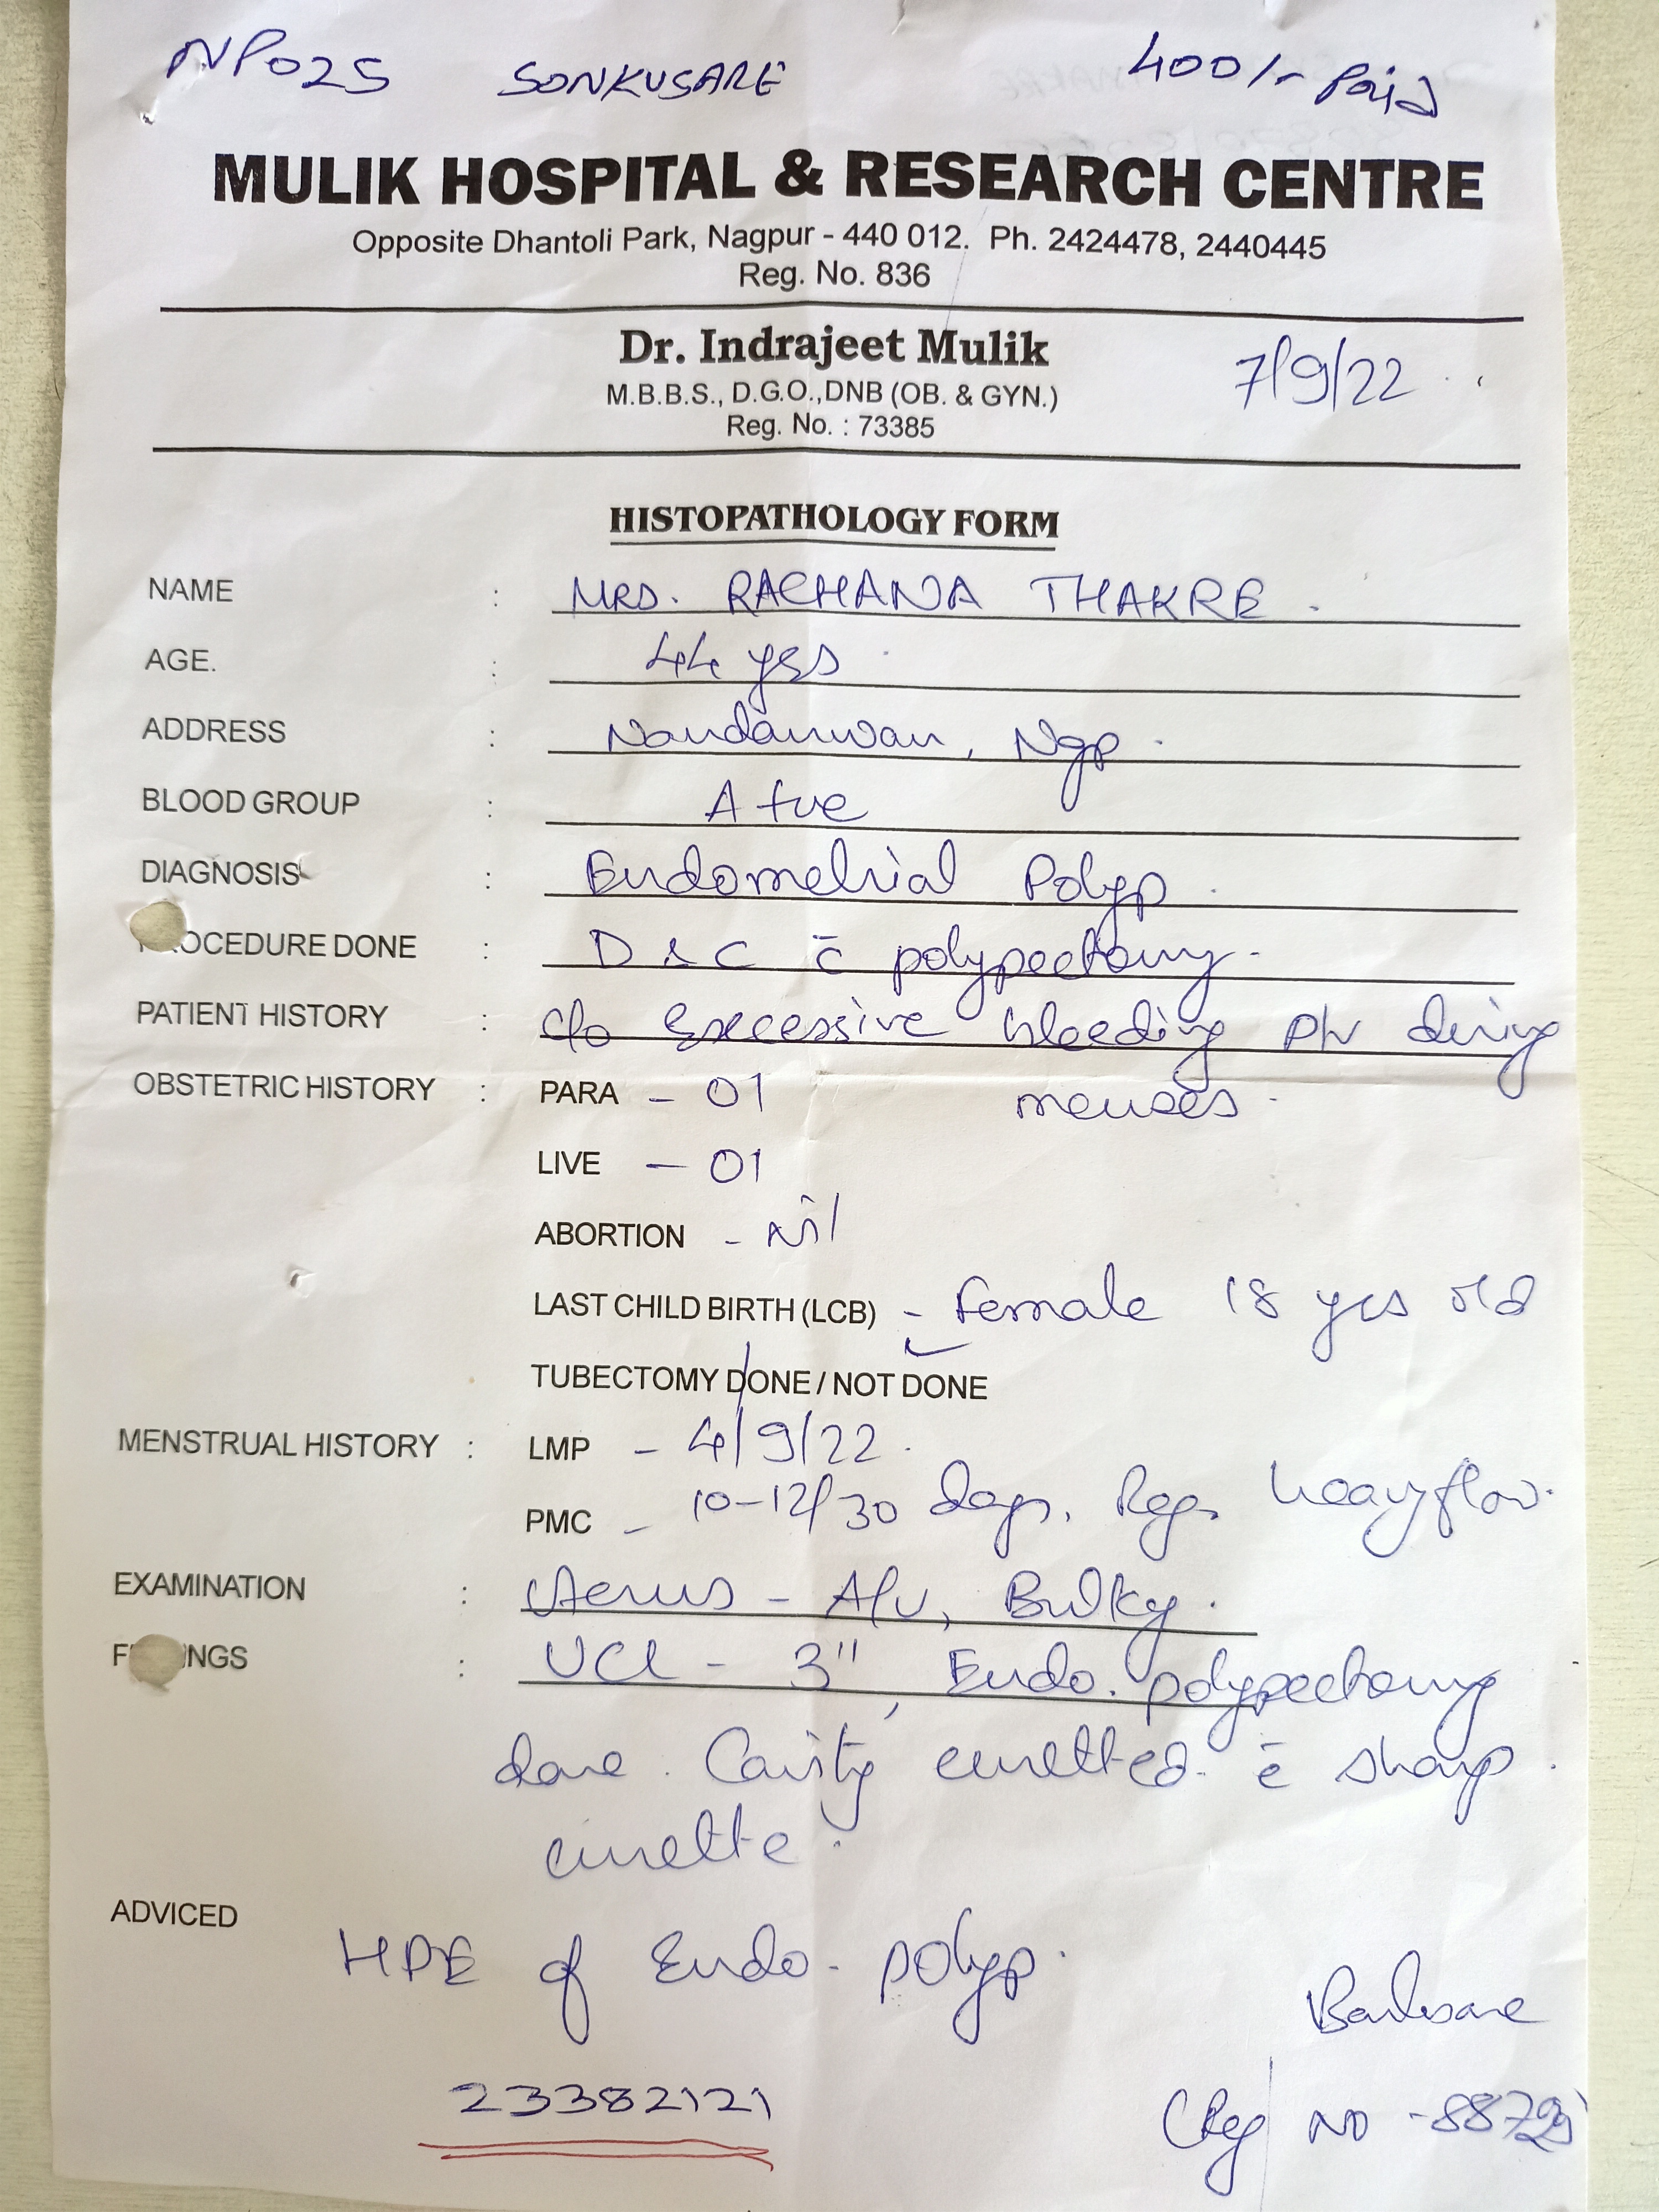 NP025 SONKUSARE 400/- Paid
MULIK HOSPITAL & RESEARCH CENTRE
Opposite Dhantoli Park, Nagpur - 440 012. Ph. 2424478, 2440445
Reg. No. 836
Dr. Indrajeet Mulik
7/9/22
M.B.B.S., D.G.O.,DNB (OB. & GYN.)
Reg. No. : 73385
HISTOPATHOLOGY FORM
NAME : MRS. RACHANA THAKRE.
AGE. : 44 yrs
ADDRESS : Nandanwan, Ngp.
BLOOD GROUP : A +ve
DIAGNOSIS : Endometrial Polyp.
PROCEDURE DONE : D & C c̄ polypectomy.
PATIENT HISTORY : c/o Excessive bleeding P/V during
menses.
OBSTETRIC HISTORY : PARA - 01
LIVE - 01
ABORTION - Nil
LAST CHILD BIRTH (LCB) - Female 18 yrs old
TUBECTOMY DONE / NOT DONE
MENSTRUAL HISTORY : LMP - 4/9/22.
PMC - 10-12/30 days. Reg. heavy flow.
EXAMINATION : Uterus - A/V, Bulky.
FINDINGS : UCL - 3", Endo. polypectomy
done. Cavity curetted c̄ sharp
curette.
ADVICED
HPE of Endo. polyp.
23382121
(Reg NO -